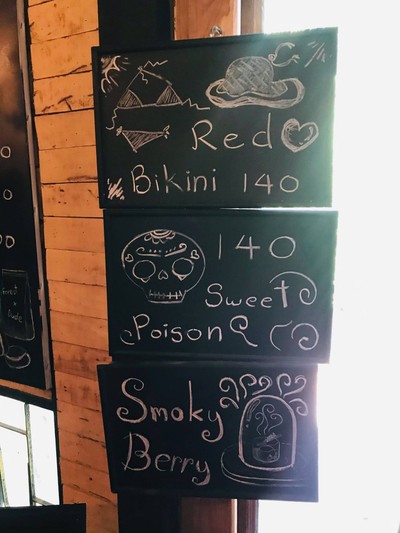 Red
Bikini 140
140
Sweet
Poison
Smoky
Berry